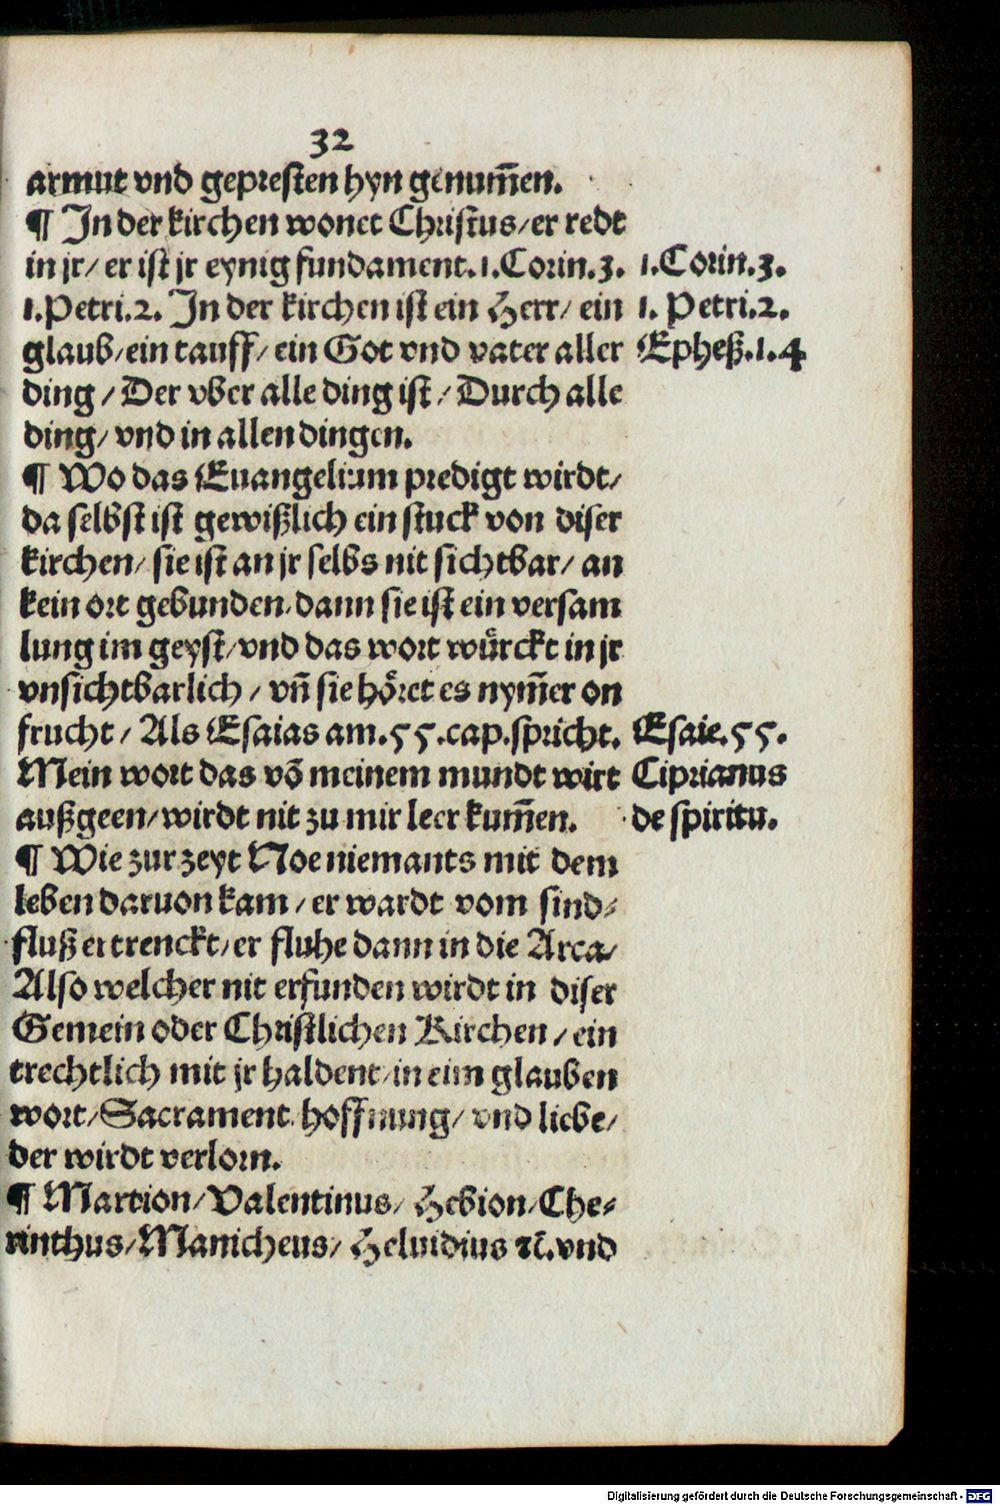 32
armut vnd gepresten hyn genum̃en.
¶ In der kirchen wonet Christus/er redt
in jr/ er ist jr eynig fundament.1.Corin.3. 1.Corin.3.
1.Petri.2. In der kirchen ist ein Herr/ ein 1. Petri.2.
glaub/ein tauff/ein Got vnd vater aller Epheß.1.4
ding/Der vber alle ding ist/Durch alle
ding/ vnd in allen dingen.
¶ Wo das Euangelium predigt wirdt/
da selbst ist gewißlich ein stuck von diser
kirchen/ sie ist an jr selbs nit sichtbar/ an
kein ort gebunden/dann sie ist ein versam
lung im geyst/vnd das wort wuͤrckt in jr
vnsichtbarlich/ vñ sie hoͤret es nym̃er on
frucht/ Als Esaias am.55.cap.spricht. Esaie.55.
Mein wort das võ meinem mundt wirt Ciprianus
außgeen/wirdt nit zu mir leer kum̃en. de spiritu.
¶ Wie zur zeyt Noe niemants mit dem
leben daruon kam/er wardt vom sind⸗
fluß ertrenckt/er fluhe dann in die Arca/
Also welcher nit erfunden wirdt in diser
Gemein oder Christlichen Kirchen/ein
trechtlich mit jr haldent/in eim glauben
wort/Sacrament hoffnung/ vnd liebe/
der wirdt verlorn.
¶ Martion/Valentinus/ Hebion/Che⸗
rinthus/Manicheus/ Heluidius ꝛc̃.vnd
Digitalisierung gefördert durch die Deutsche Forschungsgemeinschaft - DFG